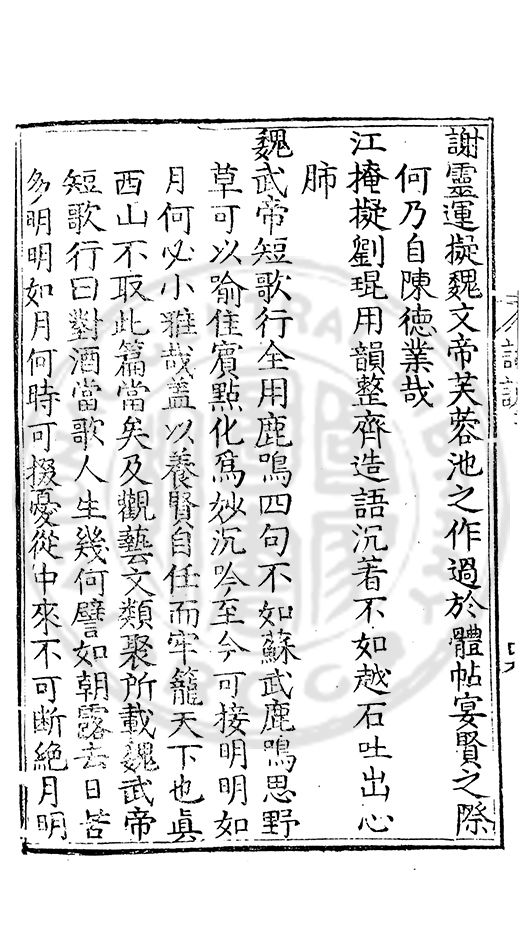 謝靈運擬魏文帝芙蓉池之作過於體帖宴賢之際
何乃自陳德業哉
江掩擬劉琨用韻整齊造語沉著不如越石吐出心
肺
魏武帝短歌行全用鹿鳴四句不如蘇武鹿鳴思野
草可以喻佳賓點化爲妙沉吟至今可接明明如
月何必小雅哉蓋以養賢自任而牢籠天下也眞
西山不取此篇當矣及觀藝文類聚所載魏武帝
短歌行曰對酒當歌人生幾何譬如朝露去日苦
多明明如月何時可掇憂從中來不可断絶月明